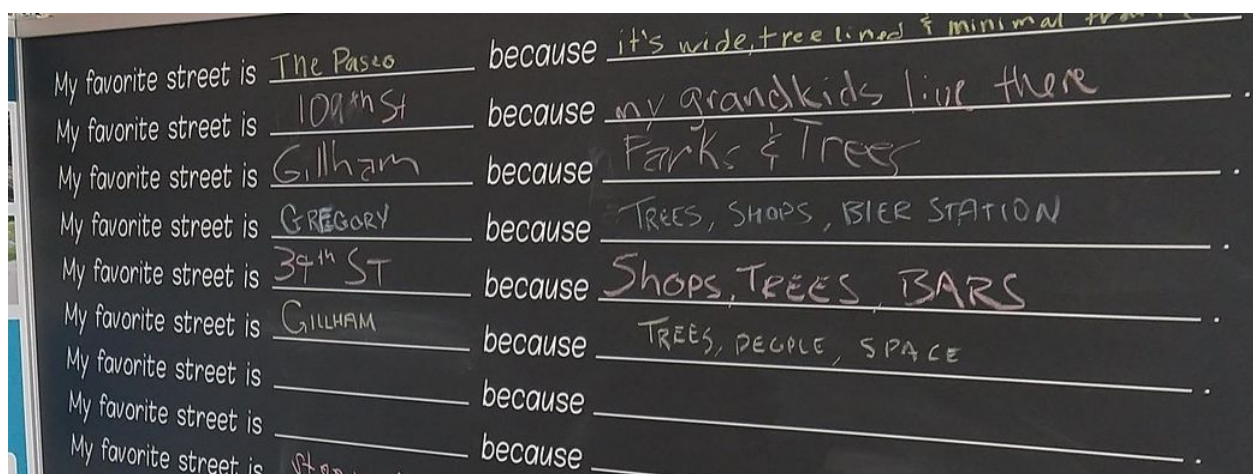 My favorite street is The Paseo because it's wide, tree lined & minimal
My favorite street is 109th St because my grandkids live there.
My favorite street is Gillham because Parks & Trees.
My favorite street is GREGORY because TREES, SHOPS, BIER STATION.
My favorite street is 39th ST because SHOPS, TREES, BARS.
My favorite street is GILLHAM because TREES, PEOPLE, SPACE.
My favorite street is because.
My favorite street is because.
My favorite street is